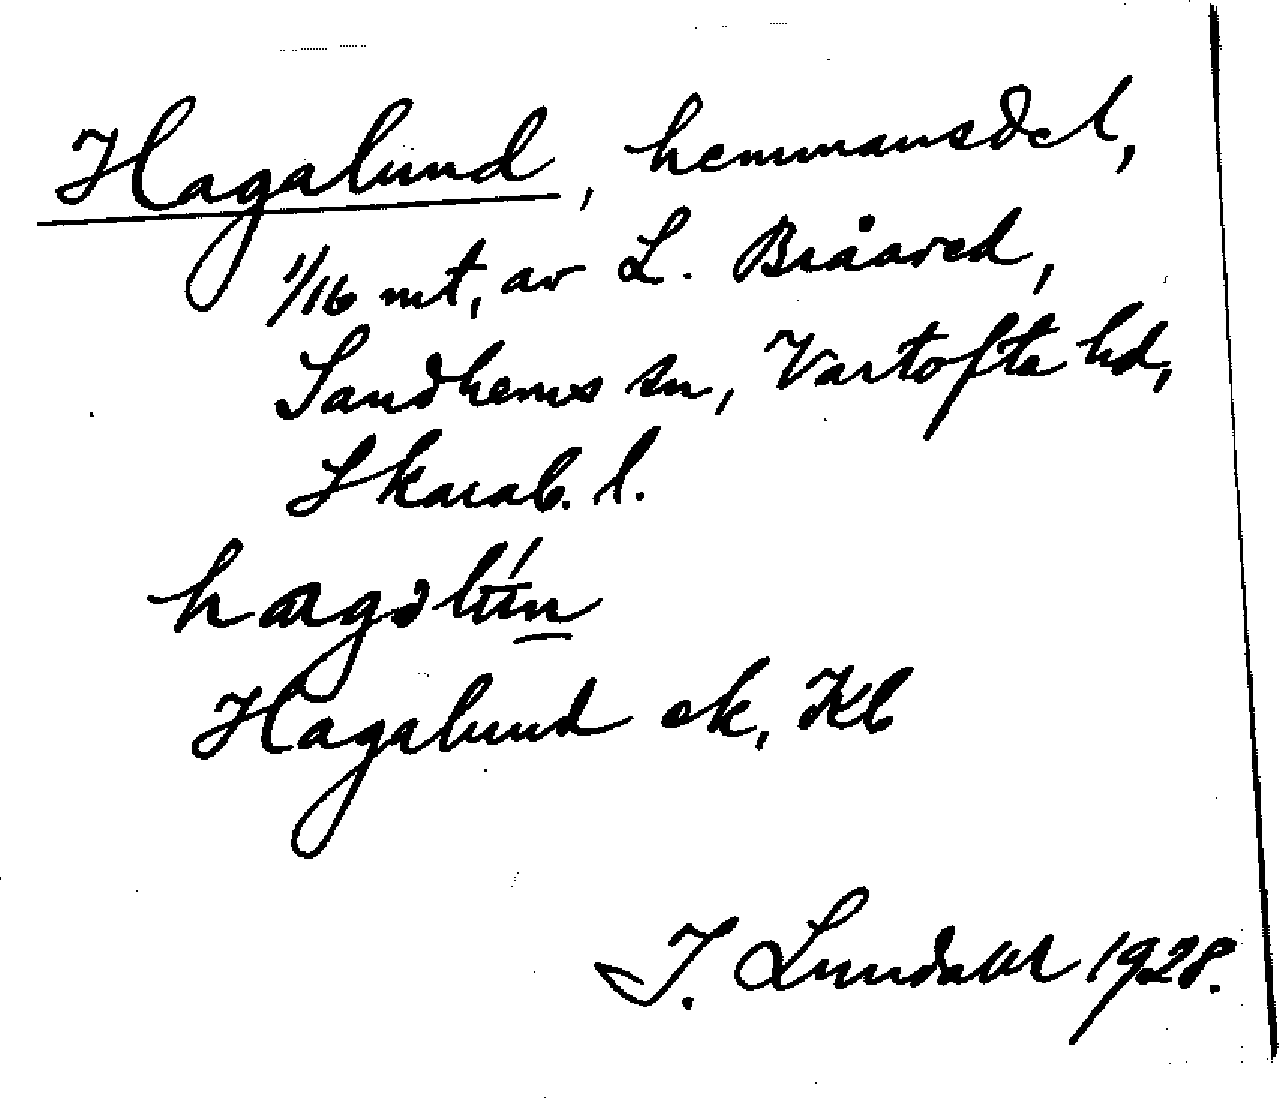 Hagalund, hemmansdel,
1/16 mt, av L. Bråared,
Sandhems sn, Vartofta hd,
Skarab. l.
Hagalund ek, Kb
J. Lundahl 1928.